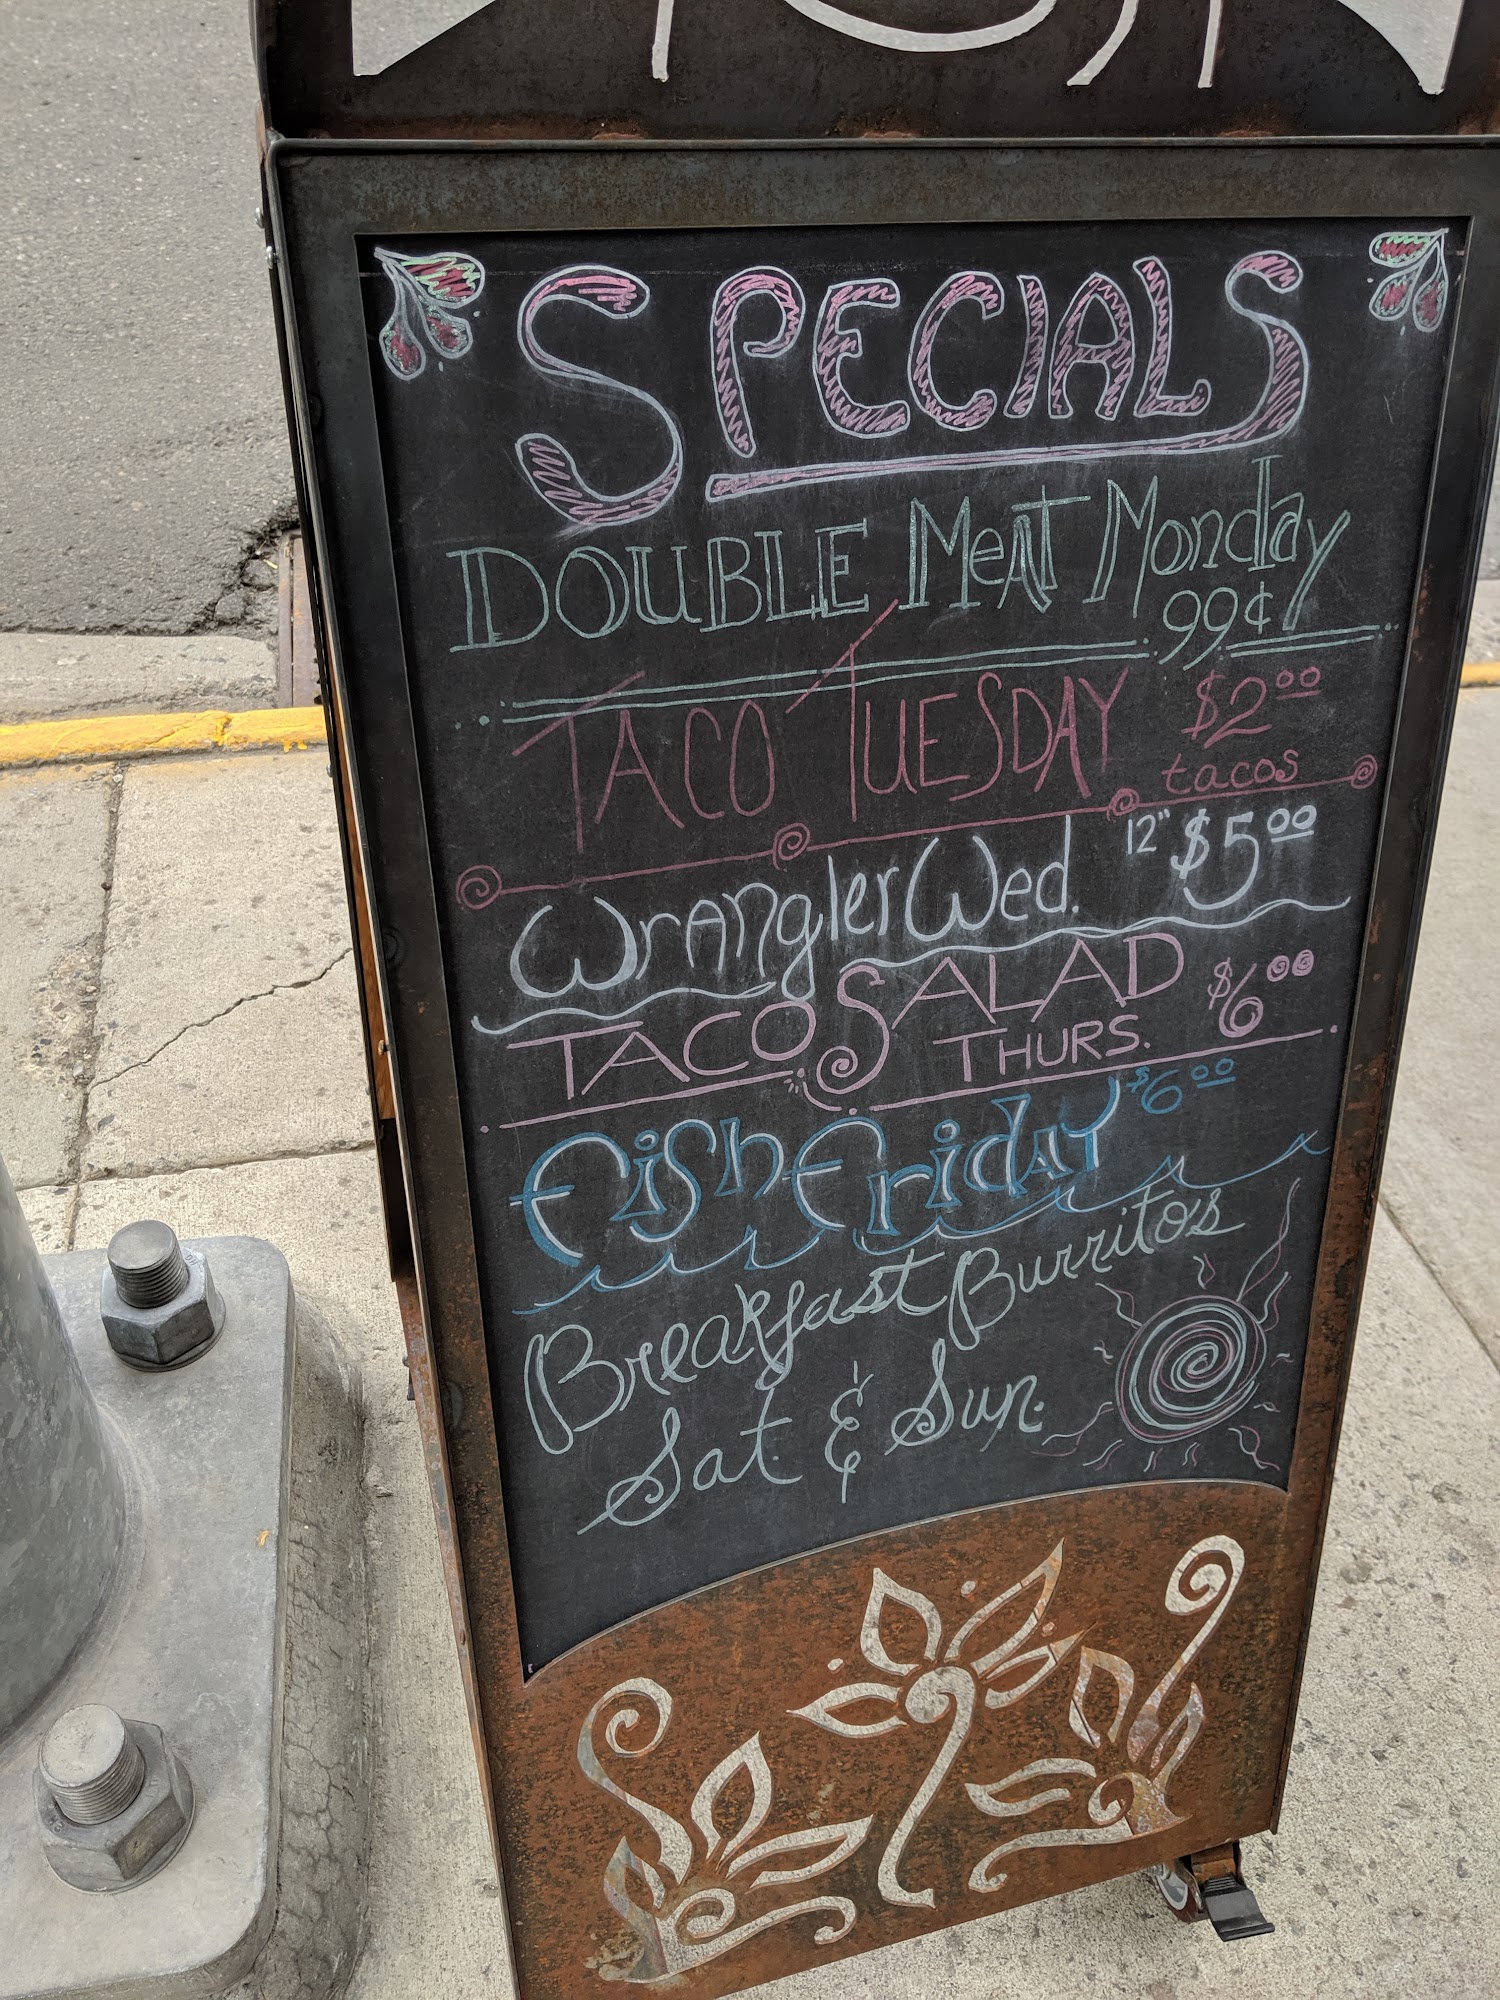 SPECIALS
DOUBLE MeAT Monday
99¢
TACO TUESDAY $2.00
tacos
WrANgler Wed. 12" $5.00
TACO SALAD $6.00
THURS.
Fish Friday $6.00
Breakfast Burrito's
Sat. & Sun.